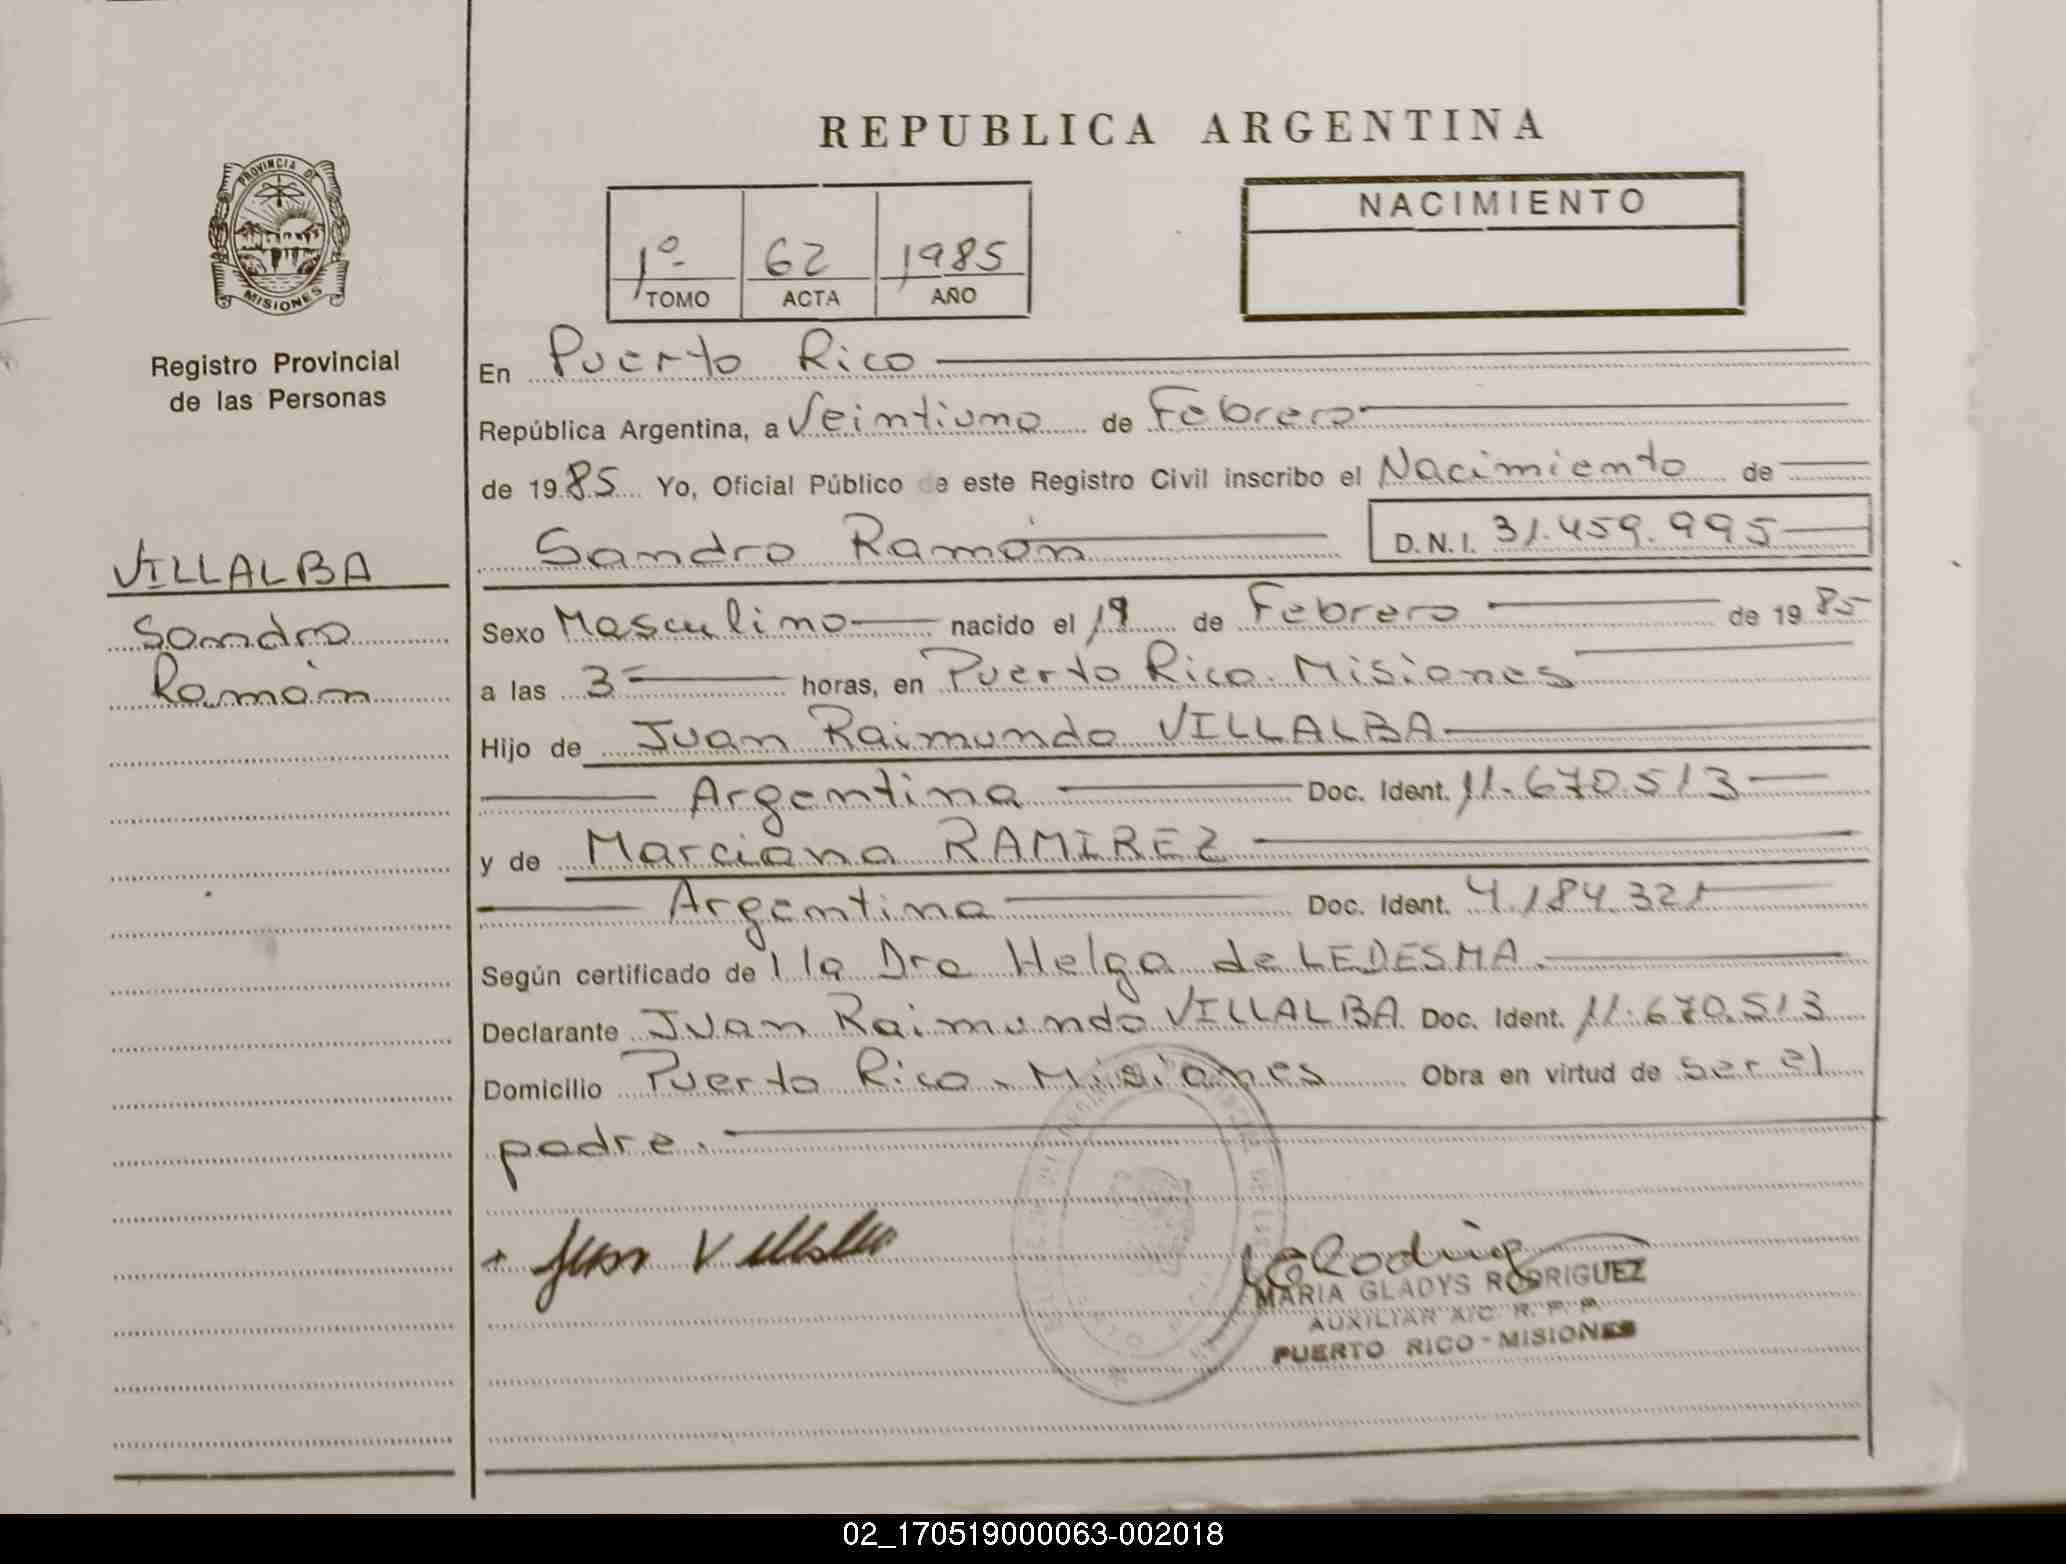 REPUBLICA ARGENTINA
PROVINCIA DE
MISIONES
Registro Provincial
de las Personas
VILLALBA
Sandro
Ramón
1º 62 1985
TOMO ACTA AÑO
NACIMIENTO
En Puerto Rico
República Argentina, a Veintiuno de Febrero
de 1985 Yo, Oficial Público de este Registro Civil inscribo el Nacimiento de
Sandro Ramón D.N.I. 31.459.995
Sexo Masculino nacido el 19 de Febrero de 1985
a las 3 horas, en Puerto Rico. Misiones
Hijo de Juan Raimundo VILLALBA
Argentina Doc. Ident. 11.670.513
y de Marciana RAMIREZ
Argentina Doc. Ident. 4.184.321
Según certificado de la Dra Helga de LEDESMA.
Declarante Juan Raimundo VILLALBA Doc. Ident. 11.670.513
Domicilio Puerto Rico. Misiones Obra en virtud de ser el
padre.
Juan Villalba
MARIA GLADYS RODRIGUEZ
AUXILIAR A/C R. P. P.
PUERTO RICO - MISIONES
02_170519000063-002018